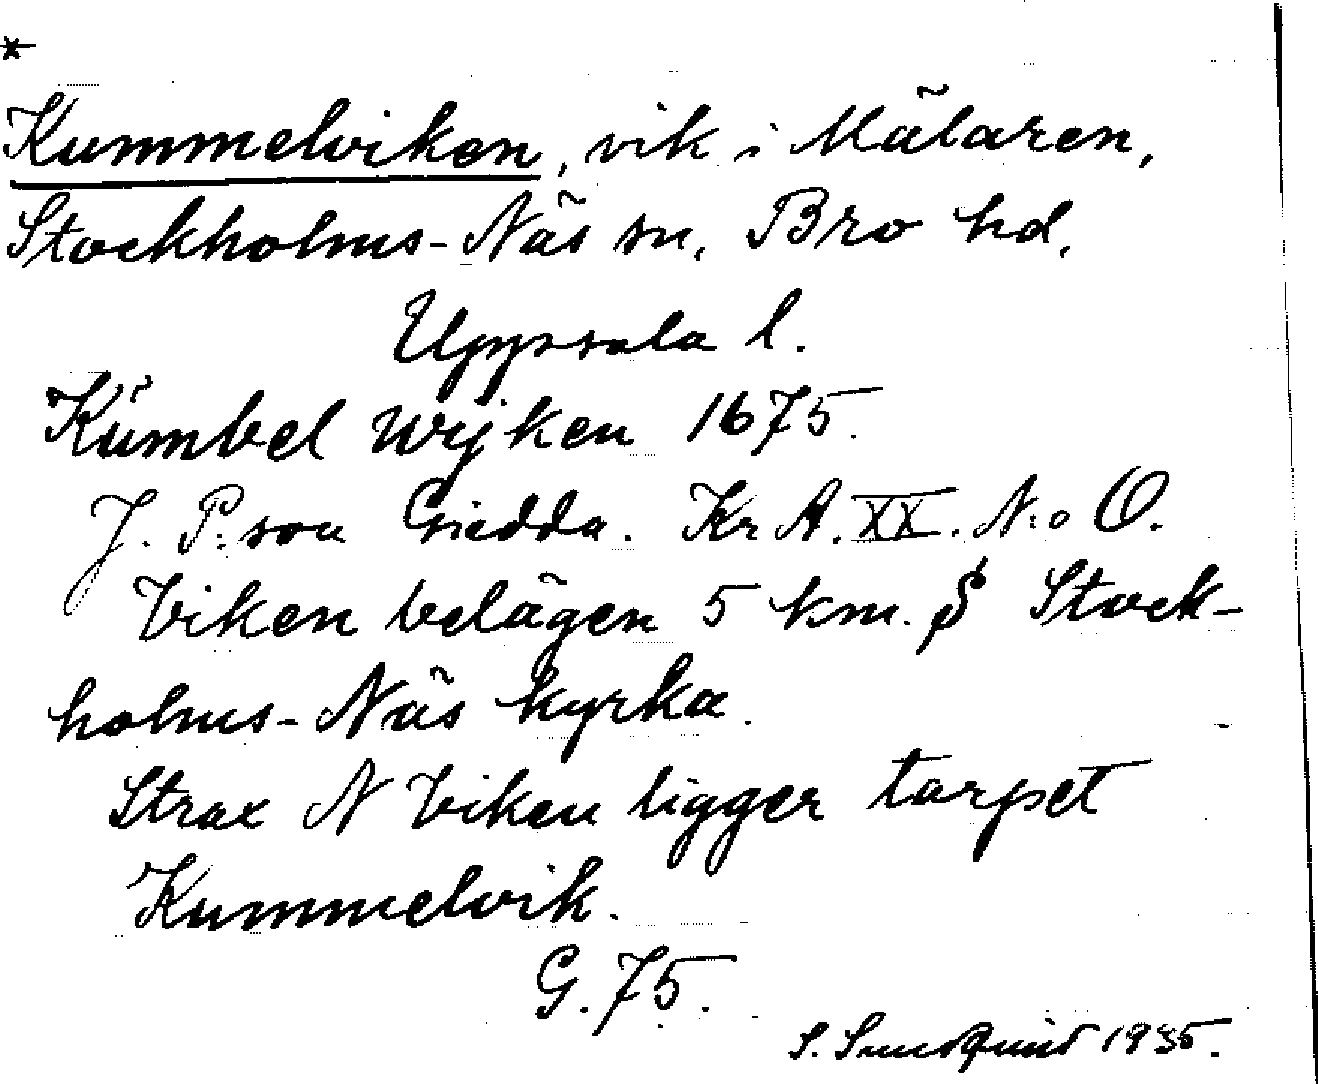 *
Kummelviken, vik i Mälaren,
Stockholms-Näs sn, Bro hd,
Uppsala l.
Kümbel Wijken 1675.
J. P:son Giedda. Kr A. XX. N:o O.
Viken belägen 5 km. S Stock-
holms-Näs kyrka.
Strax N Viken ligger torpet
Kummelvik.
G. 75.
S. Sundquist 1935.